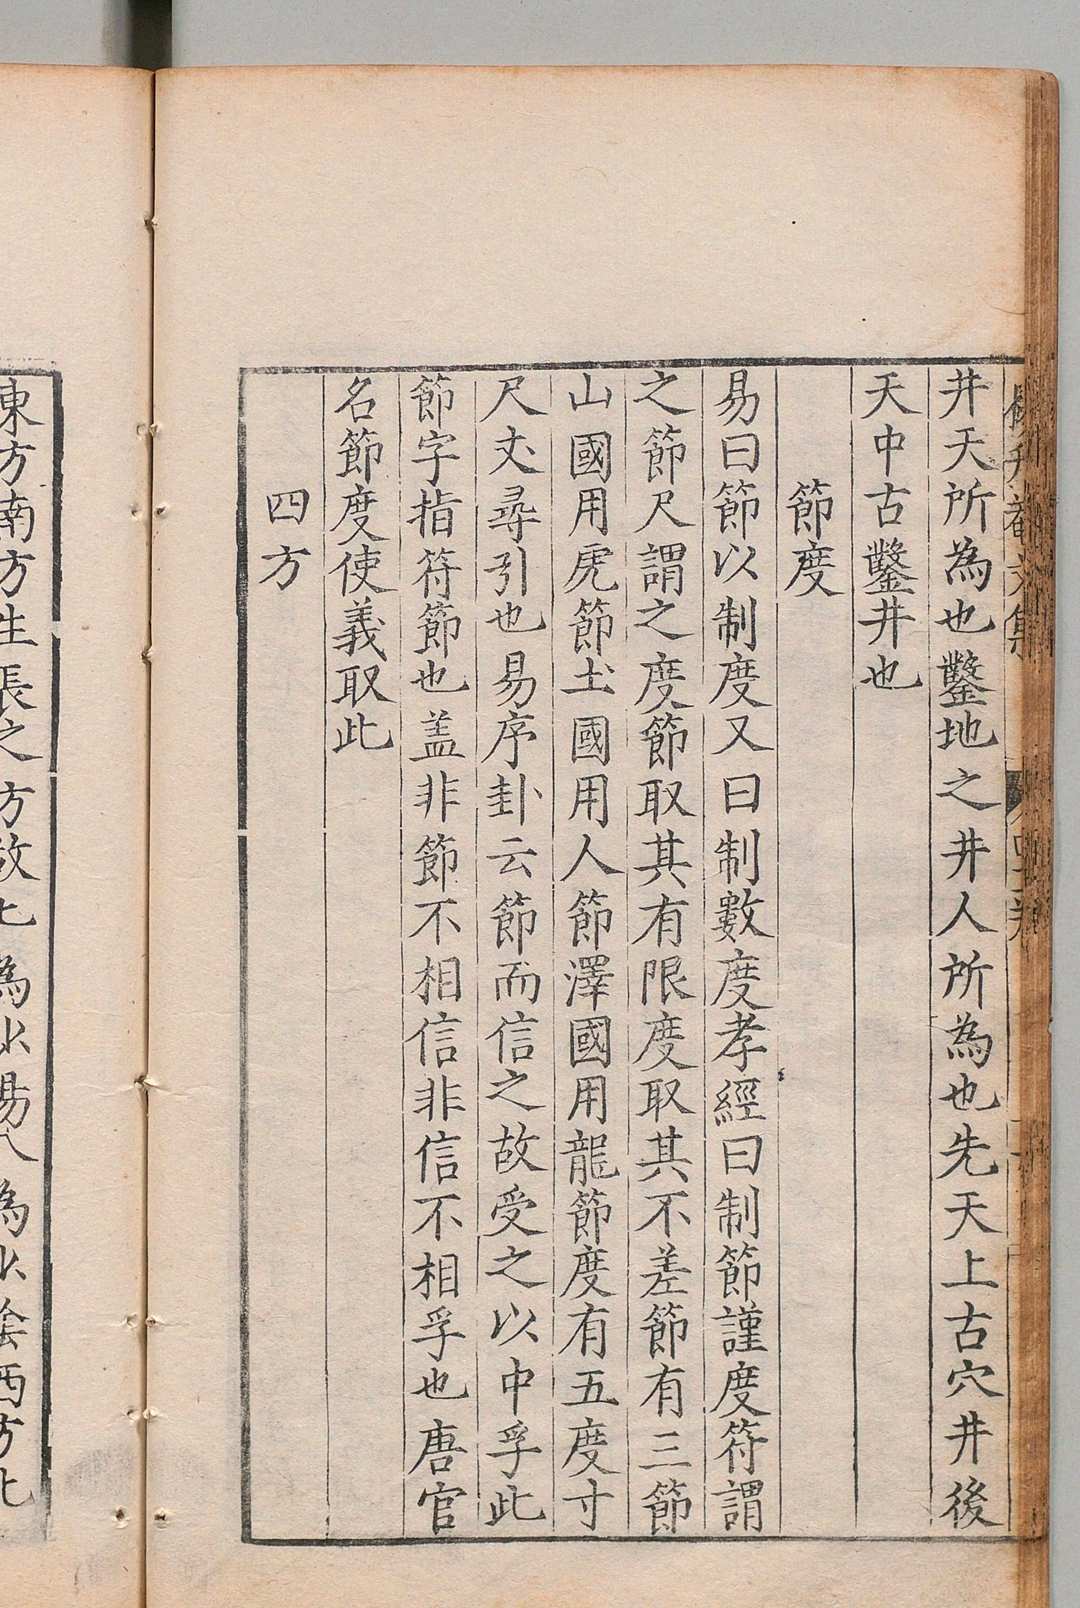 井天所為也鑿地之井人所為也先天上古穴井後
天中古鑿井也
節度
易曰節以制度又曰制數度孝經曰制節謹度符謂
之節尺謂之度節取其有限度取其不差節有三節
山國用虎節土國用人節澤國用龍節度有五度寸
尺丈尋引也易序卦云節而信之故受之以中孚此
節字指符節也盖非節不相信非信不相孚也唐官
名節度使義取此
四方
東方南方生長之方故七為少陽八為少陰西方北